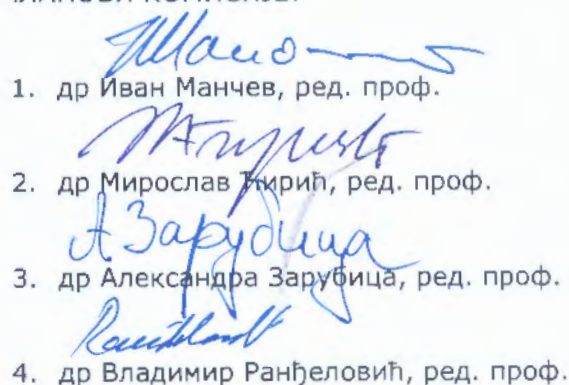 1. др Иван Манчев, ред. проф.
2. др Мирослав Ћирић, ред. проф.
А Зарубица
3. др Александра Зарубица, ред. проф.
4. др Владимир Ранђеловић, ред. проф.